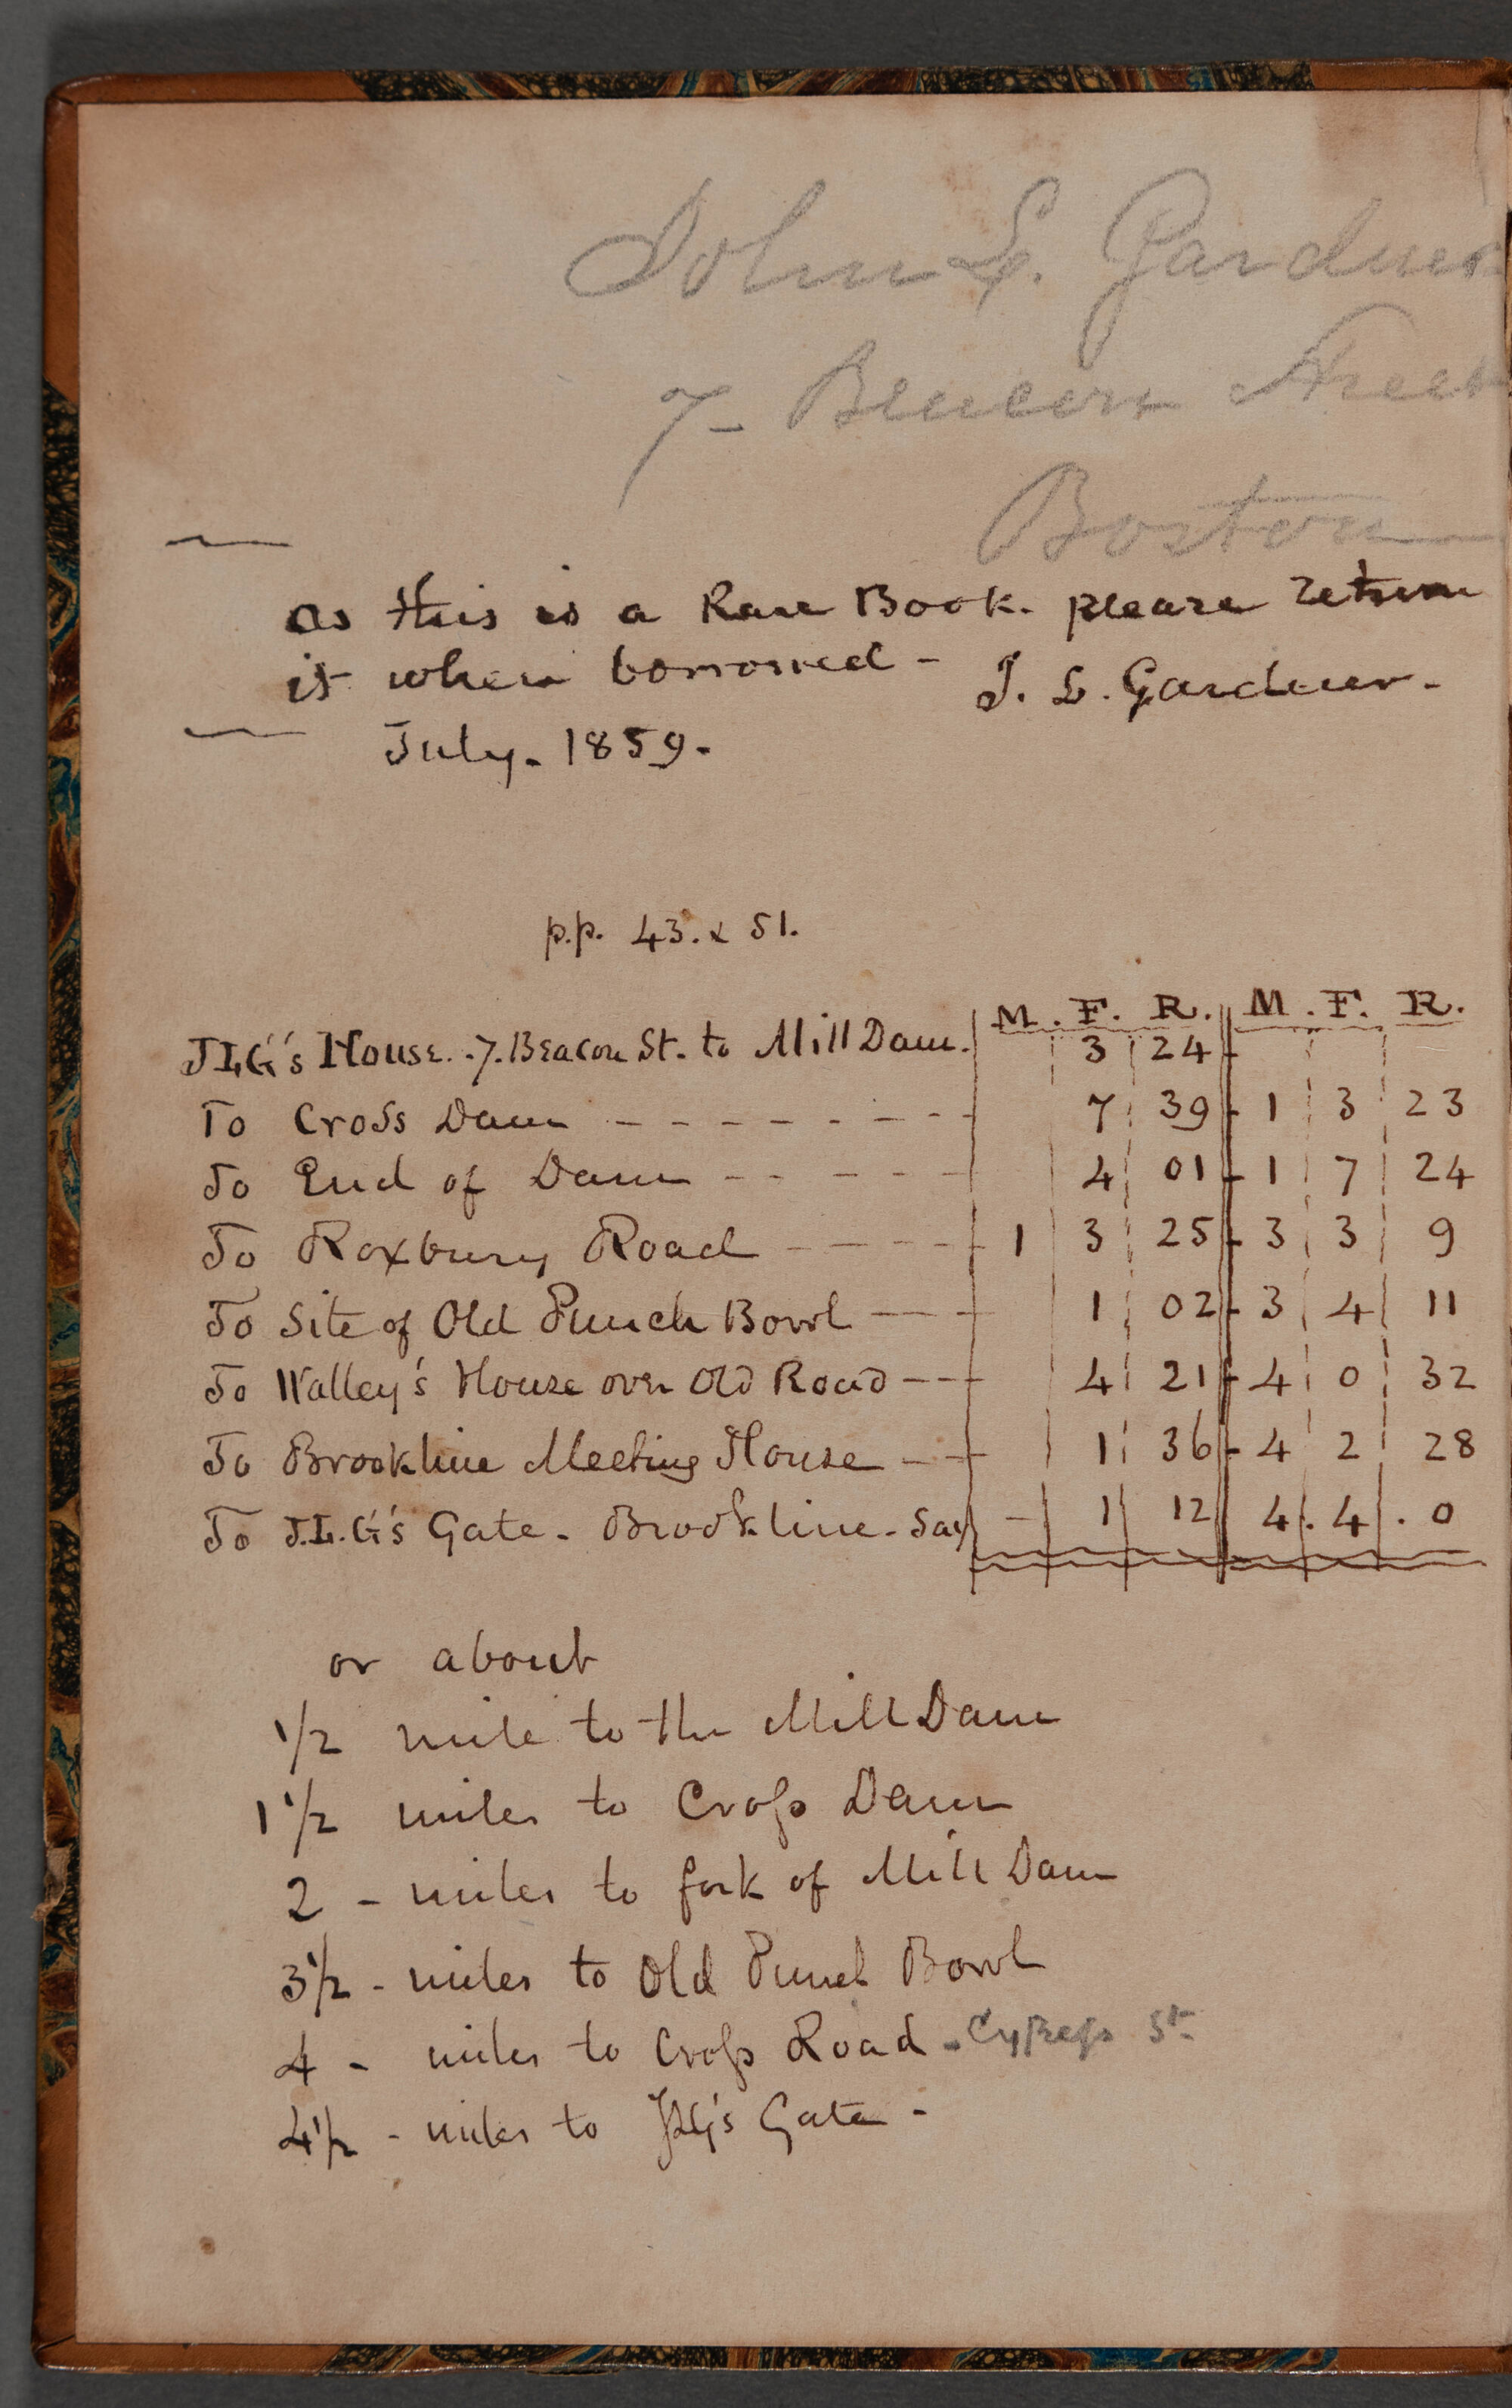 John L. Gardner
7- Beacon Street
Boston
as this is a Rare Book. please return
it when borrowed - J. L. Gardner.
July. 1859.
p.p. 43. & 51.
M. F. R. M. F. R.
J.L.G's House. 7. Beacon St. to Mill Dam. 3 24
To Cross Dam - - - - - - - 7 39 - 1 3 23
To End of Dam - - - - - 4 01 - 1 7 24
To Roxbury Road - - - - - 1 3 25 - 3 3 9
To Site of Old Punch Bowl - - - 1 02 - 3 4 11
To Walley's House over Old Road - - - 4 21 - 4 0 32
To Brookline Meeting House - - 1 36 - 4 2 28
To J.L.G's Gate - Brookline - Say - 1 12 4. 4. 0
or about
1/2 mile to the Mill Dam
1 1/2 miles to Cross Dam
2 - miles to fork of Mill Dam
3 1/2 - miles to Old Punch Bowl
4 - miles to Cross Road - Cypress St.
4 1/2 - miles to JLG's Gate -